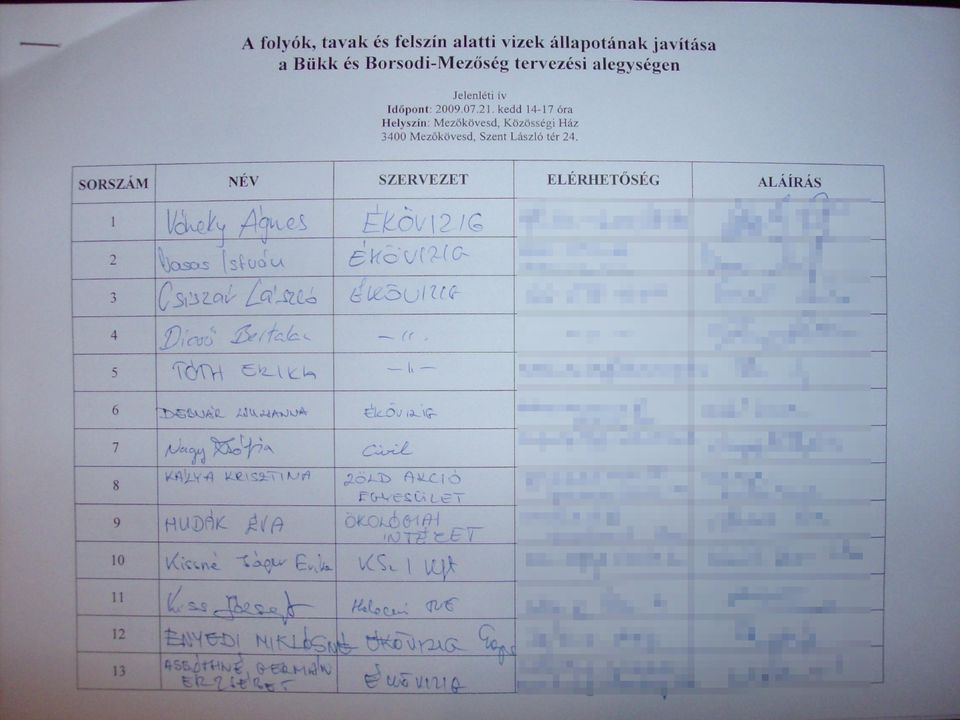 A folyók, tavak és felszín alatti vizek állapotának javítása
a Bükk és Borsodi-Mezőség tervezési alegységen
Jelenléti ív
Időpont: 2009.07.21. kedd 14-17 óra
Helyszín: Mezőkövesd, Közösségi Ház
3400 Mezőkövesd, Szent László tér 24.
SORSZÁM NÉV SZERVEZET ELÉRHETŐSÉG ALÁÍRÁS
1 Ágnes ÉKÖVIZIG
2 Vasas István ÉKÖVIZIG
3 Csiszár László ÉKÖVIZIG
4 - " -
5 TÓTH ERIKA - " -
6 ZSUZSANNA ÉKÖVIZIG
7 Nagy Zsófia Civil
8 KÁLYA KRISZTINA ZÖLD AKCIÓ
EGYESÜLET
9 HUDÁK ÉVA ÖKOLÓGIAI
INTÉZET
10 Kissné Jáger Erika KSZI Kft
11 Kiss József
12 ENYEDI MIKLÓSNÉ ÉKÖVIZIG
13 GERMÁN
ERZSÉBET ÉKÖVIZIG